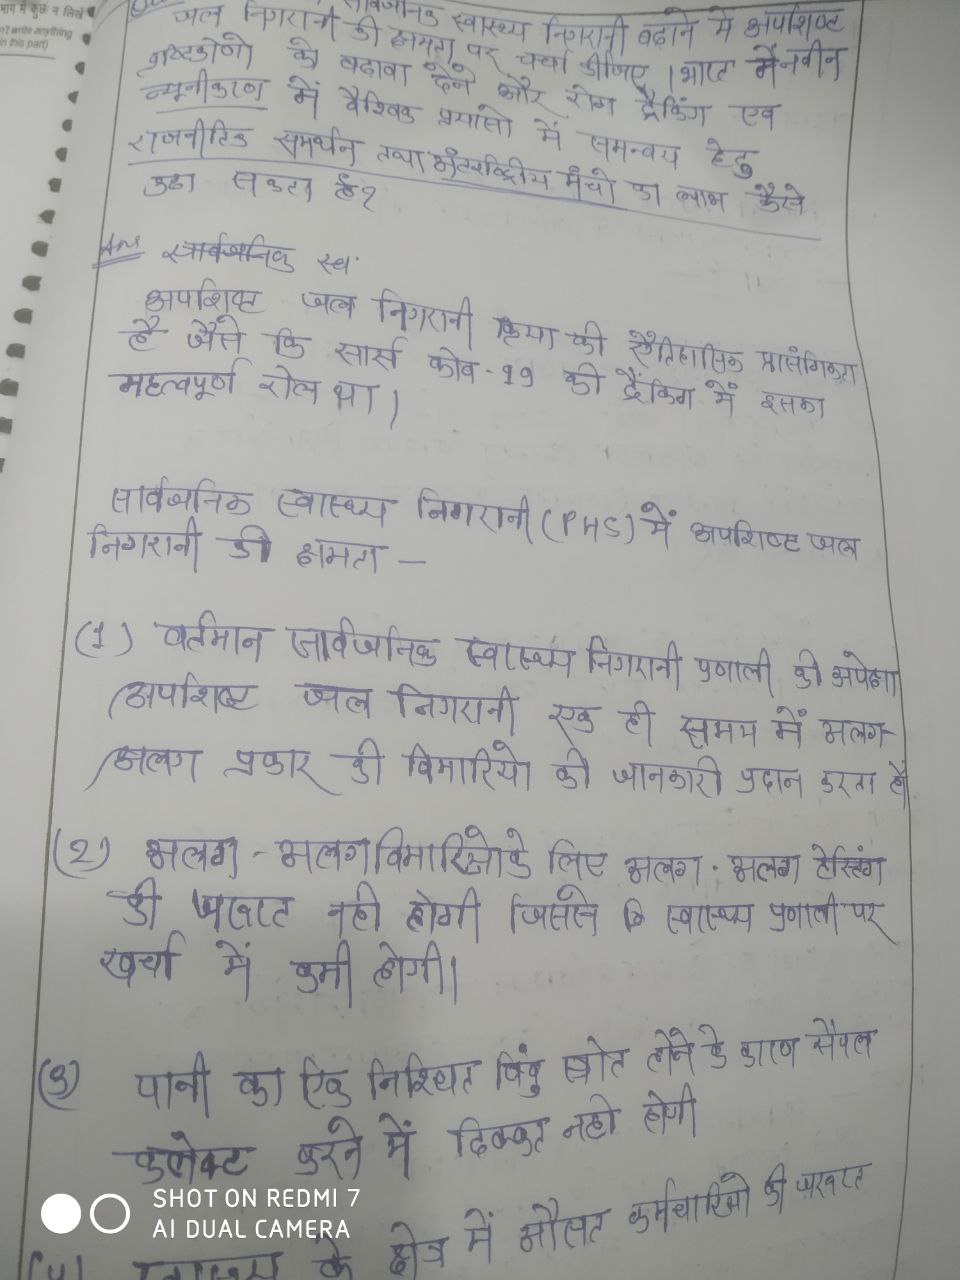 भाग में कुछ न लिखें
n't write anything
in this part)
सार्वजनिक स्वास्थ्य निगरानी बढ़ाने में अपशिष्ट
जल निगरानी की क्षमता पर चर्चा कीजिए। भारत में नवीन
दृष्टिकोणों को बढ़ावा देने और रोग ट्रैकिंग एवं
न्यूनीकरण में वैश्विक प्रयासों में समन्वय हेतु
राजनीतिक समर्थन तथा अंतरराष्ट्रीय मंचो का लाभ कैसे
उठा सकता है?
Ans सार्वजनिक स्व
अपशिष्ट जल निगरानी क्रिया की ऐतिहासिक प्रासंगिकता
है जैसे कि सार्स कोव-19 की ट्रैकिंग में इसका
महत्वपूर्ण रोल था।
सार्वजनिक स्वास्थ्य निगरानी (PHS) में अपशिष्ट जल
निगरानी की क्षमता —
(1) वर्तमान सार्वजनिक स्वास्थ्य निगरानी प्रणाली की अपेक्षा
अपशिष्ट जल निगरानी एक ही समय में अलग-
अलग प्रकार की बिमारियो की जानकारी प्रदान करता है
(2) अलग-अलग बिमारिओ के लिए अलग-अलग टेस्टिंग
की जरुरत नही होगी जिससे कि स्वास्थ्य प्रणाली पर
खर्चा में कमी होगी।
(3) पानी का एक निश्चित बिंदु स्रोत होने के कारण सैंपल
कलेक्ट करने में दिक्कत नही होगी
(4) स्वास्थ्य के क्षेत्र में औसत कर्मचारिओ की जरुरत
SHOT ON REDMI 7
AI DUAL CAMERA